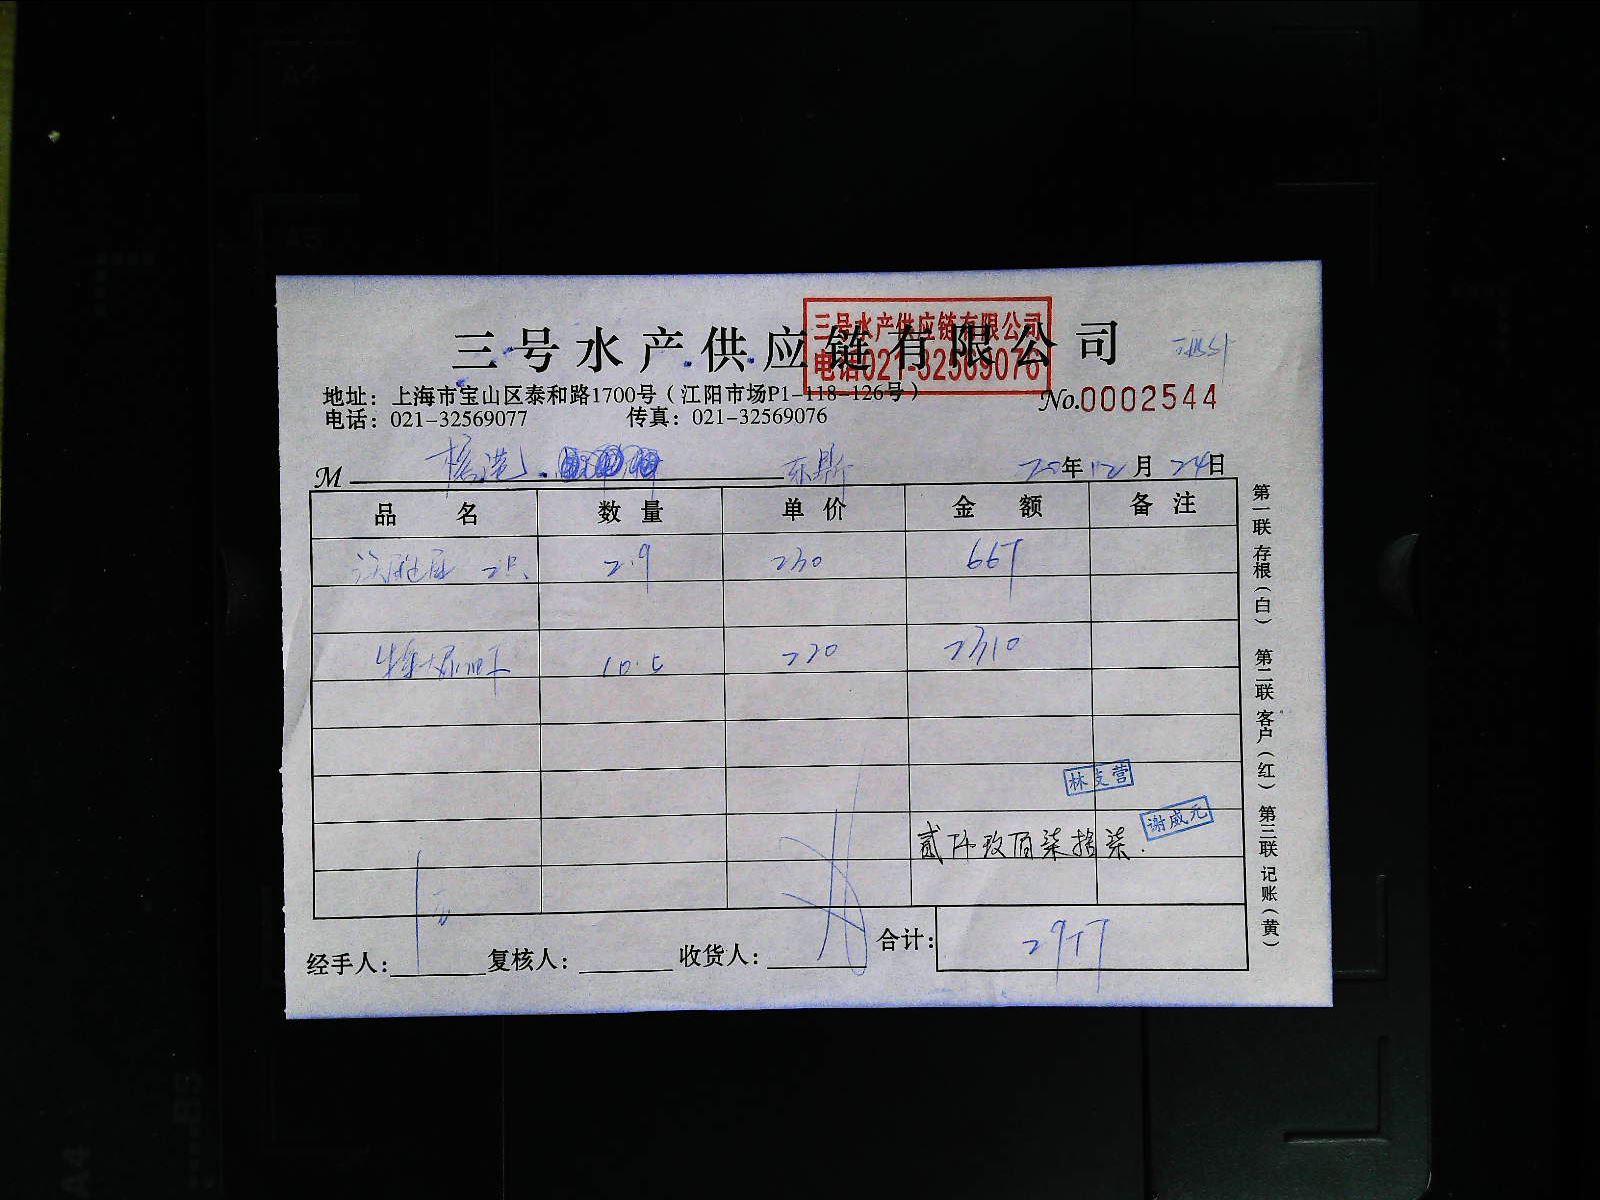 三号水产供应链有限公司
三号水产供应链有限公司
电话021-32569076
地址：上海市宝山区泰和路1700号（江阳市场P1-118-126号）
No.0002544
电话：021-32569077 传真：021-32569076
M 东鼎 20年12月24日
品名 数量 单价 金额 备注
2只 2.9 230 667
10.5 220 2310
林支营
谢威元
贰仟玖佰柒拾柒
经手人： 复核人： 收货人： 合计： 2977
第一联 存根（白） 第二联 客户（红） 第三联 记账（黄）